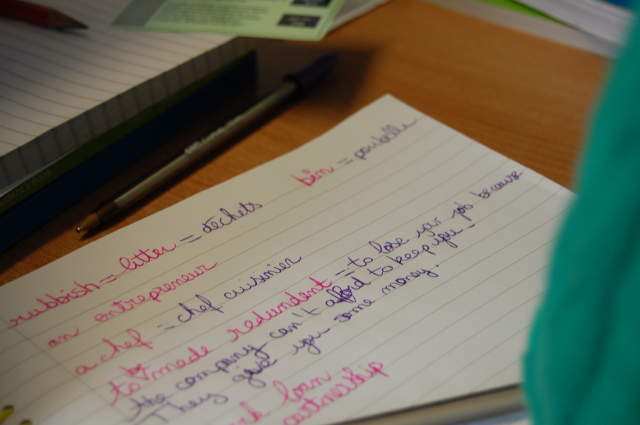 bin = poubelle
rubbish = litter = déchets
an entrepreneur
a chef = chef cuisinier
to be made redundant = to lose your job because
the company can't afford to keep you.
They give you some money
loan
partnership